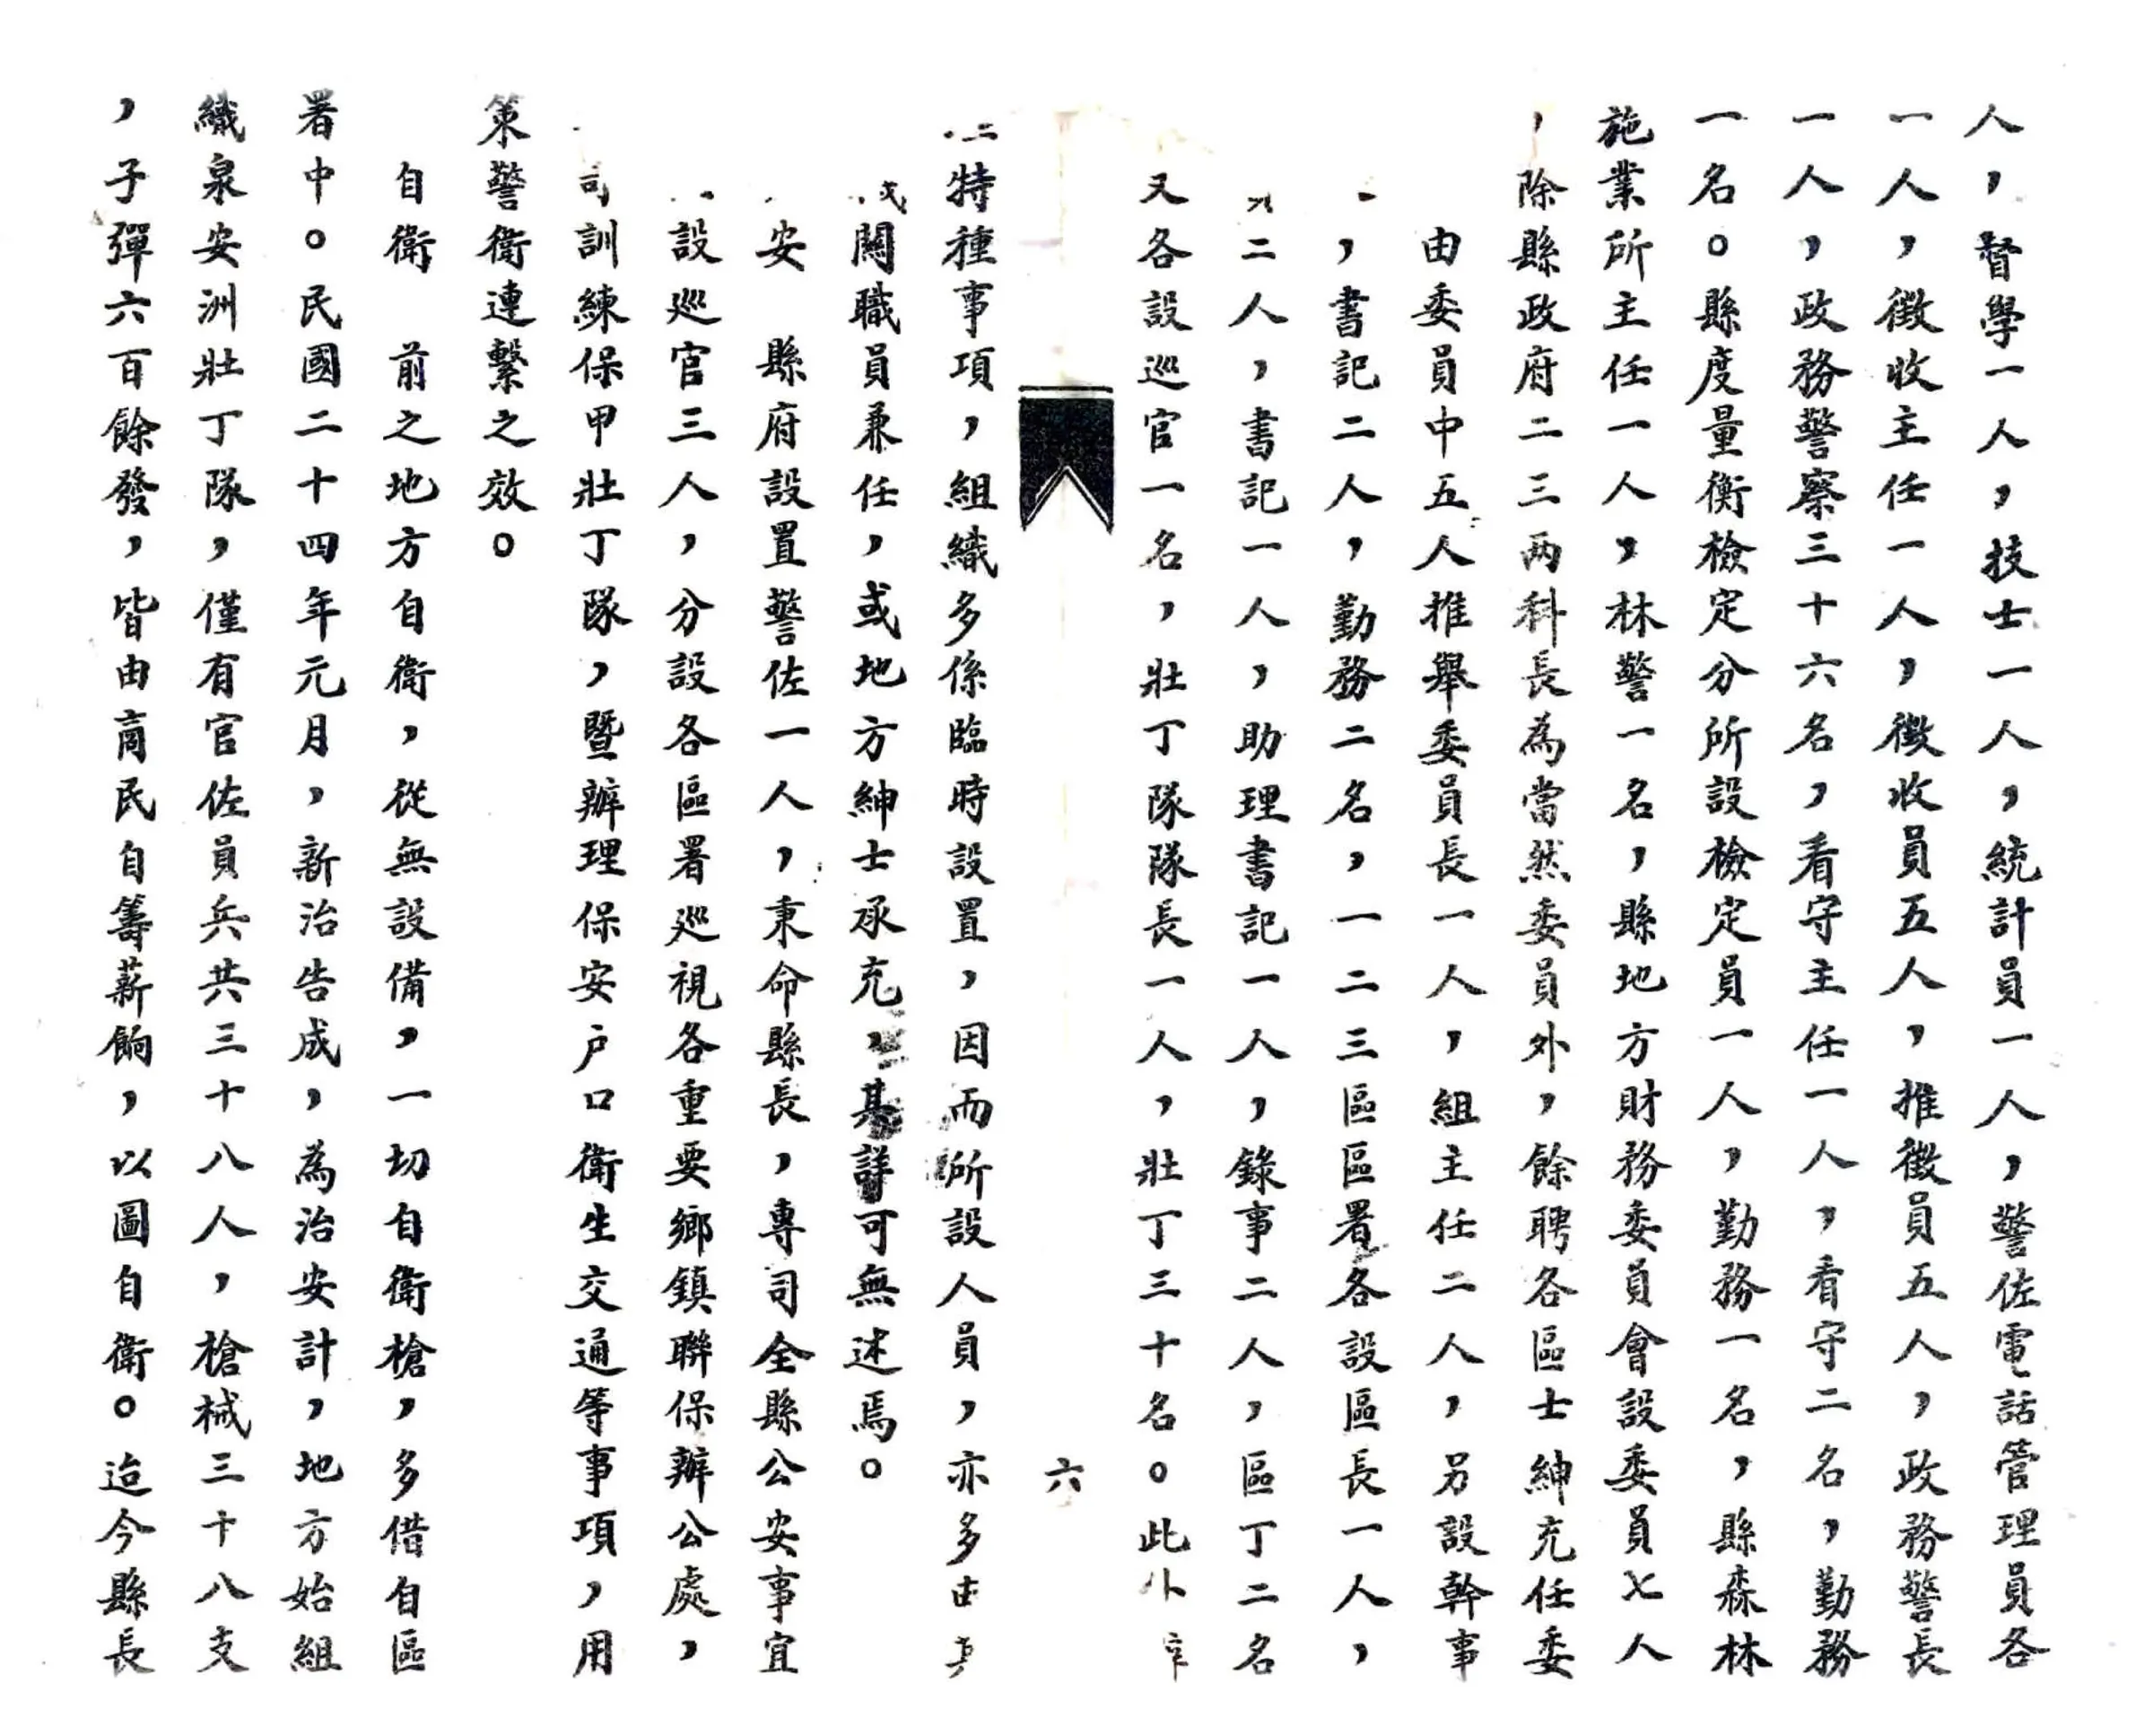 人，督學一人，技士一人，統計員一人，警佐電話管理員各
一人，徵收主任一人，徵收員五人，推徵員五人，政務警長
一人，政務警察三十六名，看守主任一人，看守二名，勤務
一名。縣度量衡檢定分所設檢定員一人，勤務一名，縣森林
施業所主任一人，林警一名，縣地方財務委員會設委員七人
，除縣政府二三两科長為當然委員外，餘聘各區士紳充任委
由委員中五人推舉委員長一人，組主任二人，另設幹事
，書記二人，勤務二名，一二三區區署各設區長一人，
二人，書記一人，助理書記一人，錄事二人，區丁二名
又各設巡官一名，壯丁隊隊長一人，壯丁三十名。此外
六
特種事項，組織多係臨時設置，因而所設人員，亦多由
關職員兼任，或地方紳士承充，其詳可無述焉。
安　縣府設置警佐一人，秉命縣長，專司全縣公安事宜
設巡官三人，分設各區署巡視各重要鄉鎮聯保辦公處，
司訓練保甲壯丁隊，暨辦理保安户口衛生交通等事項，用
策警衛連繫之效。
自衛　前之地方自衛，從無設備，一切自衛槍，多借自區
署中。民國二十四年元月，新治告成，為治安計，地方始組
織泉安洲壯丁隊，僅有官佐員兵共三十八人，槍械三十八支
，子彈六百餘發，皆由商民自籌薪餉，以圖自衛。迨今縣長